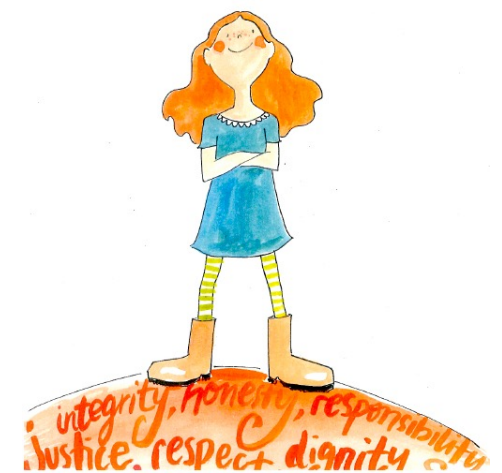 integrity, honesty, responsibility
justice, respect dignity